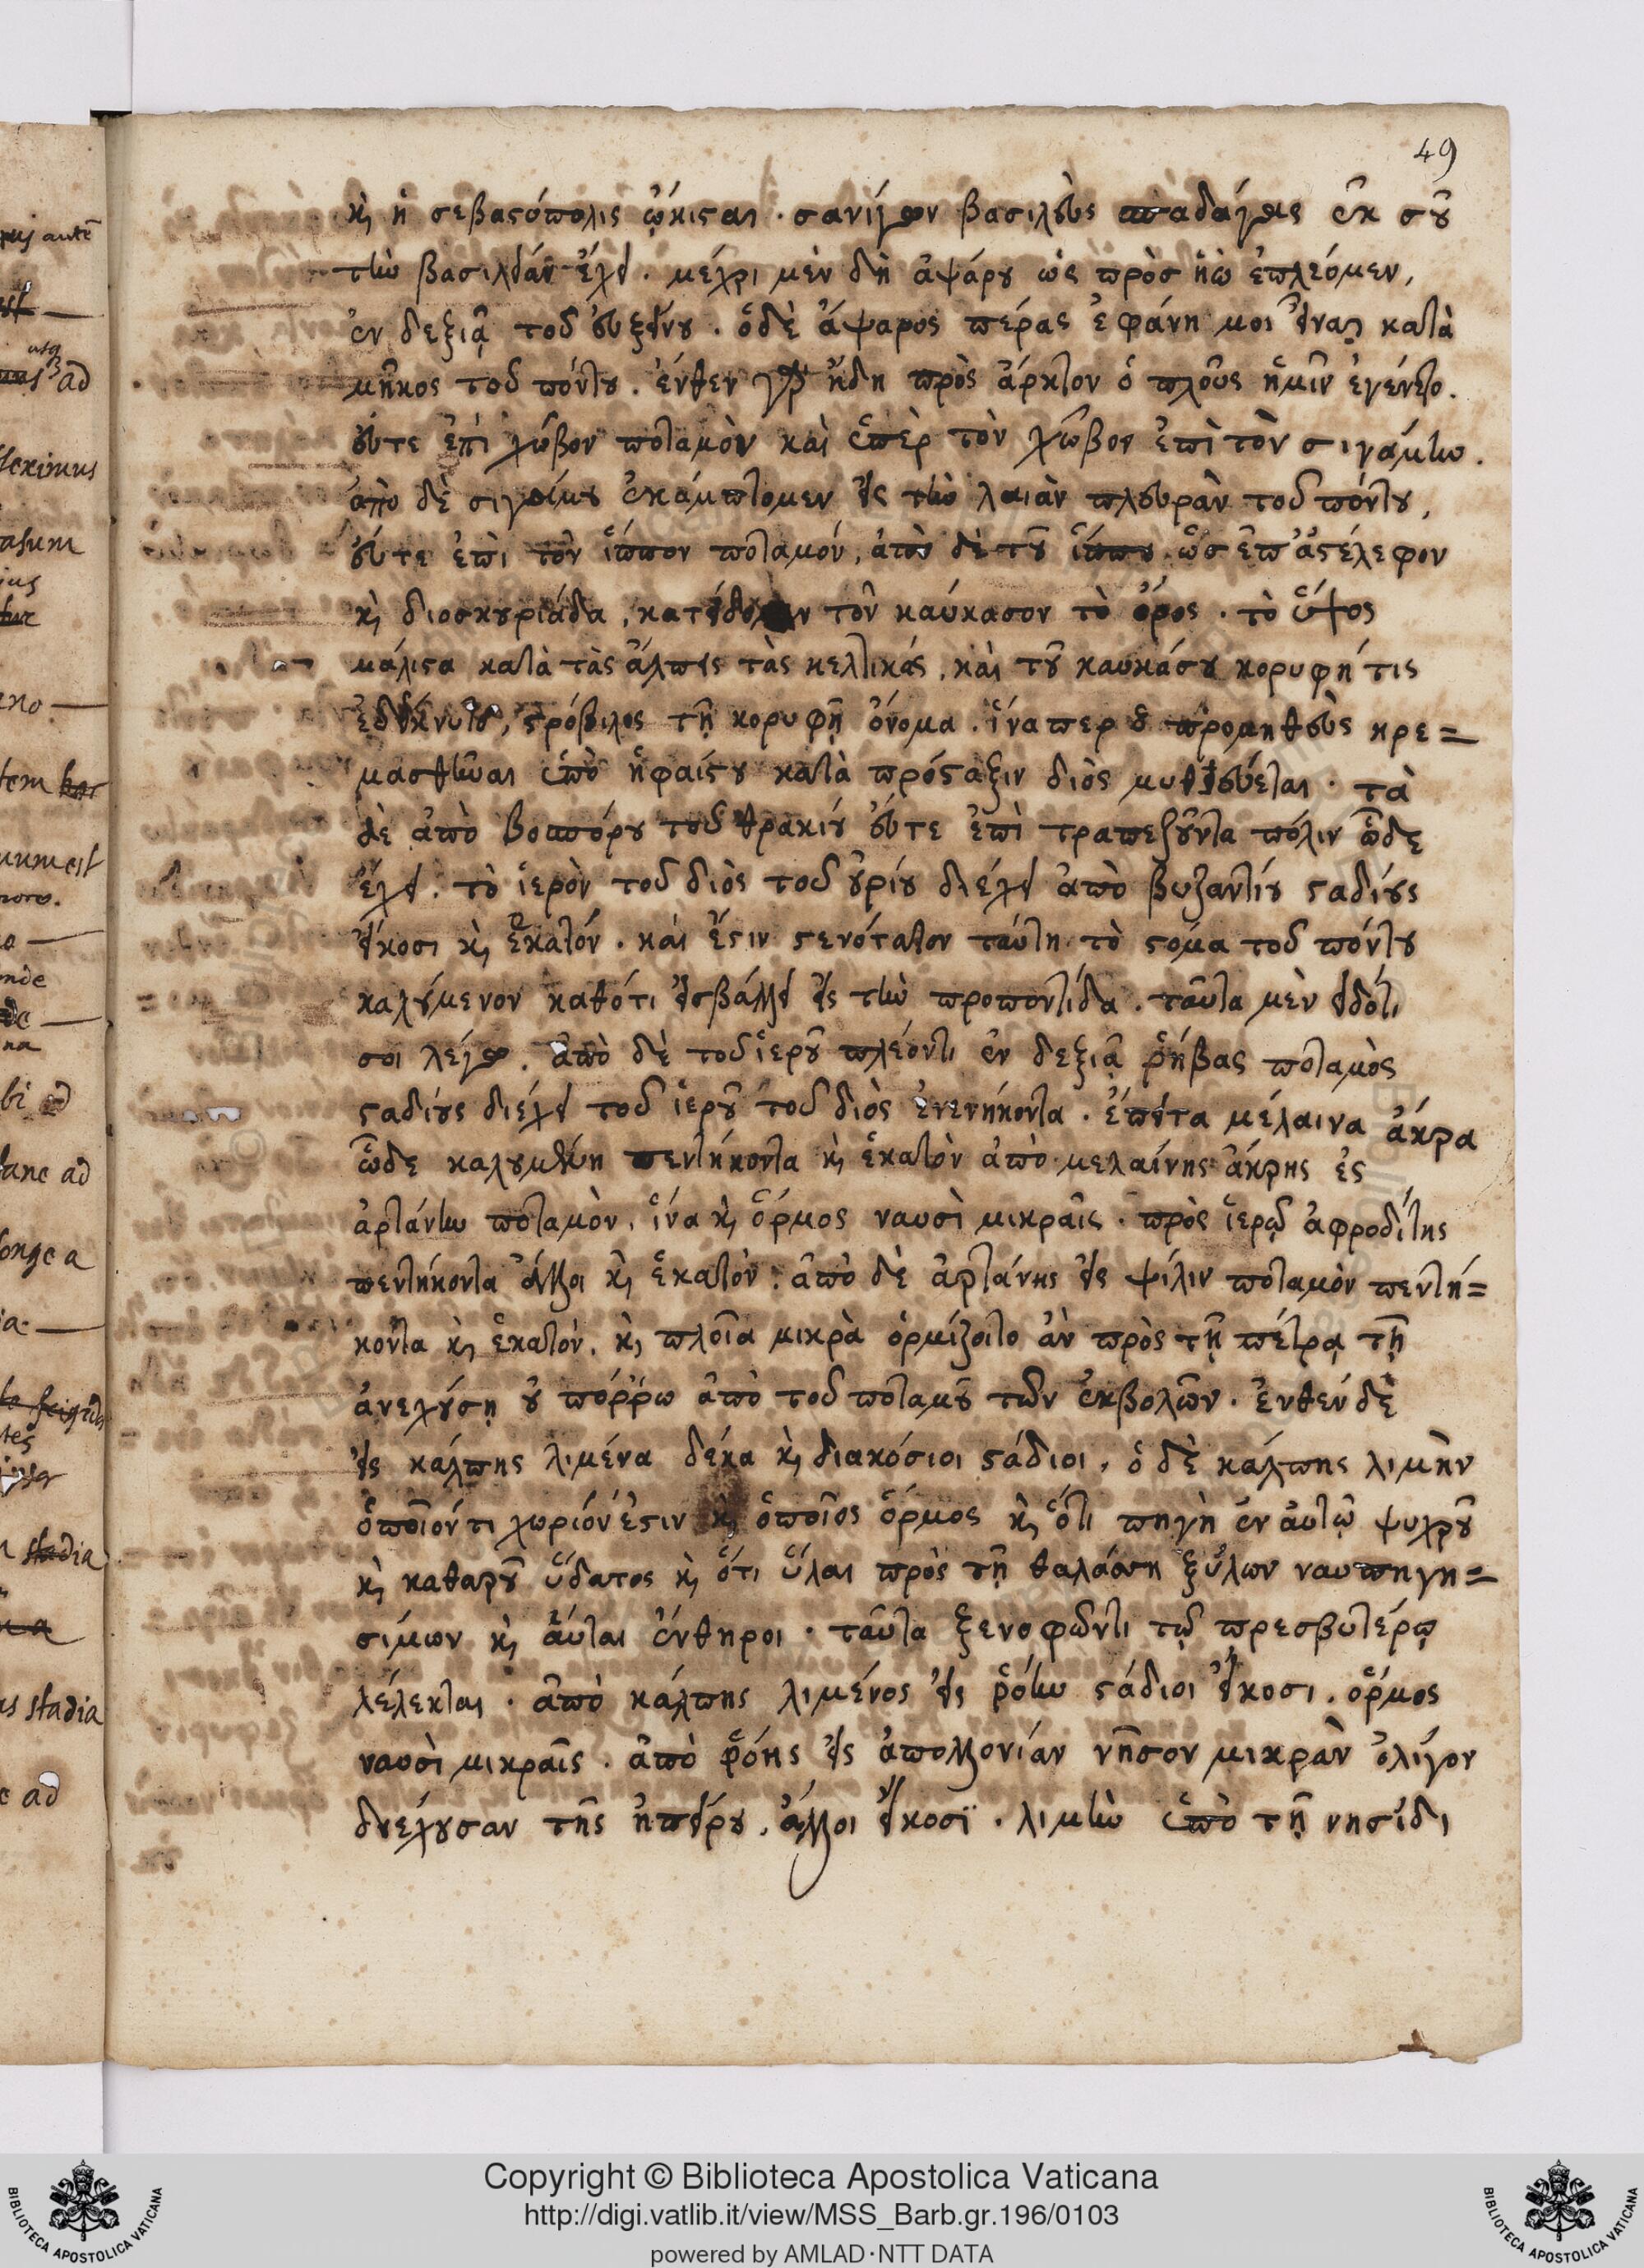 49
κ, ἡ σεβαςόπολις ᾤκιςαι. σανίγων βασιλεὺς σπαδάγας ἐκ σοῦ
τὴν βασιλείαν ἔχει. μέχρι μὲν δὴ ἀψάρου ὡς πρὸσ ἠὼ ἐπλεόμεν,
ἐν δεξιᾷ τοῦ εὐξείνου. ὁδὲ ἄψαρος πέρας ἐφάνη μοι εἶναι κατὰ
μῆκος τοῦ πόντου. ἔνθεν γὰρ ἤδη πρὸς ἄρκτον ὁ πλοῦς ἡμῖν ἐγένετο.
ἔυτε ἐπὶ χῶβον ποταμὸν καὶ ὑπὲρ τὸν χῶβον ἐπὶ τὸν σιγάμην.
ἀπὸ δὲ σιγάμου ἐκάμπτομεν εἰς τὴν λαιὰν πλευρὰν τοῦ πόντου,
ἔυτε ἐπὶ τὸν ἵππον ποταμόν, ἀπὸ δὲ τοῦ ἵππου ὡσ ἐπ' ἀςέλεφον
κ, διοσκουριάδα, κατείδομεν τὸν καύκασον τὸ ὄρος. τὸ ὕψος
μάλιςα κατὰ τὰς ἄλπεις τὰς κελτικάς, καὶ τοῦ καυκάσου κορυφή τις
ἐδείκνυτο, ςρόβιλος τῇ κορυφῇ ὄνομα. ἵναπερ ὁ προμηθεὺς κρε=
μασθῆναι ὑπὸ ἡφαίςου κατὰ πρόςαξιν διὸς μυθεύεται. τὰ
δὲ ἀπὸ βοσπόρου τοῦ θρακίου ἔυτε ἐπὶ τραπεζοῦντα πόλιν ὧδε
ἔχει. τὸ ἱερὸν τοῦ διὸς τοῦ οὐρίου διέχει ἀπὸ βυζαντίου ςαδίους
εἴκοσι κ, ἑκατόν. καὶ ἔςιν ςενότατον ταύτη τὸ ςόμα τοῦ πόντου
καλούμενον καθότι εἰσβάλλει εἰς τὴν προποντίδα. ταῦτα μὲν εἰδότι
σοι λέγω. ἀπὸ δὲ τοῦ ἱεροῦ πλέοντι ἐν δεξιᾷ ῥήβας ποταμὸς
ςαδίους διέχει τοῦ ἱεροῦ τοῦ διὸς ἐνενήκοντα. ἔπειτα μέλαινα ἄκρα
ὧδε καλουμένη πεντήκοντα κ, ἑκατὸν ἀπὸ μελαίνης ἄκρης ἐς
ἀρτάνην ποταμὸν, ἵνα κ, ὅρμος ναυσὶ μικραῖς. πρὸς ἱερῷ ἀφροδίτης
πεντήκοντα ἄλλοι κ, ἑκατόν. ἀπὸ δὲ ἀρτάνης εἰς ψίλιν ποταμὸν πεντή=
κοντα κ, ἑκατὸν. κ, πλοῖα μικρὰ ὁρμίζοιτο ἀν πρὸς τῇ πέτρᾳ τῇ
ἀνεχούσῃ οὐ πόρρω ἀπὸ τοῦ ποταμοῦ τῶν ἐκβολῶν. ἐνθέν δὲ
εἰς κάλπης λιμένα δέκα κ, διακόσιοι ςάδιοι, ὁ δὲ κάλπης λιμὴν
ὁποῖόν τι χωρίον ἐςιν κ, ὁποῖος ὅρμος κ, ὅτι πηγὴ ἐν ἀυτῷ ψυχροῦ
κ, καθαροῦ ὕδατος κ, ὅτι ὕλαι πρὸς τῇ θαλάσση ξύλων ναυπηγη=
σίμων κ, ἅυται ἔνθηροι. ταῦτα ξενοφῶντι τῷ πρεσβυτέρῳ
λέλεκται. ἀπὸ κάλπης λιμένος εἰς ῥόην ςάδιοι εἴκοσι. ὅρμος
ναυσὶ μικραῖς. ἀπὸ ῥόης εἰς ἀπολλονίαν νῆσον μικρὰν ὀλίγον
διεχουσαν τῆς ἠπείρου, ἄλλοι εἴκοσϊ. λιμὴν ὑπὸ τῇ νησίδι
Copyright © Biblioteca Apostolica Vaticana
http://digi.vatlib.it/view/MSS_Barb.gr.196/0103
powered by AMLAD·NTT DATA
BIBLIOTECA APOSTOLICA VATICANA
BIBLIOTECA APOSTOLICA VATICANA